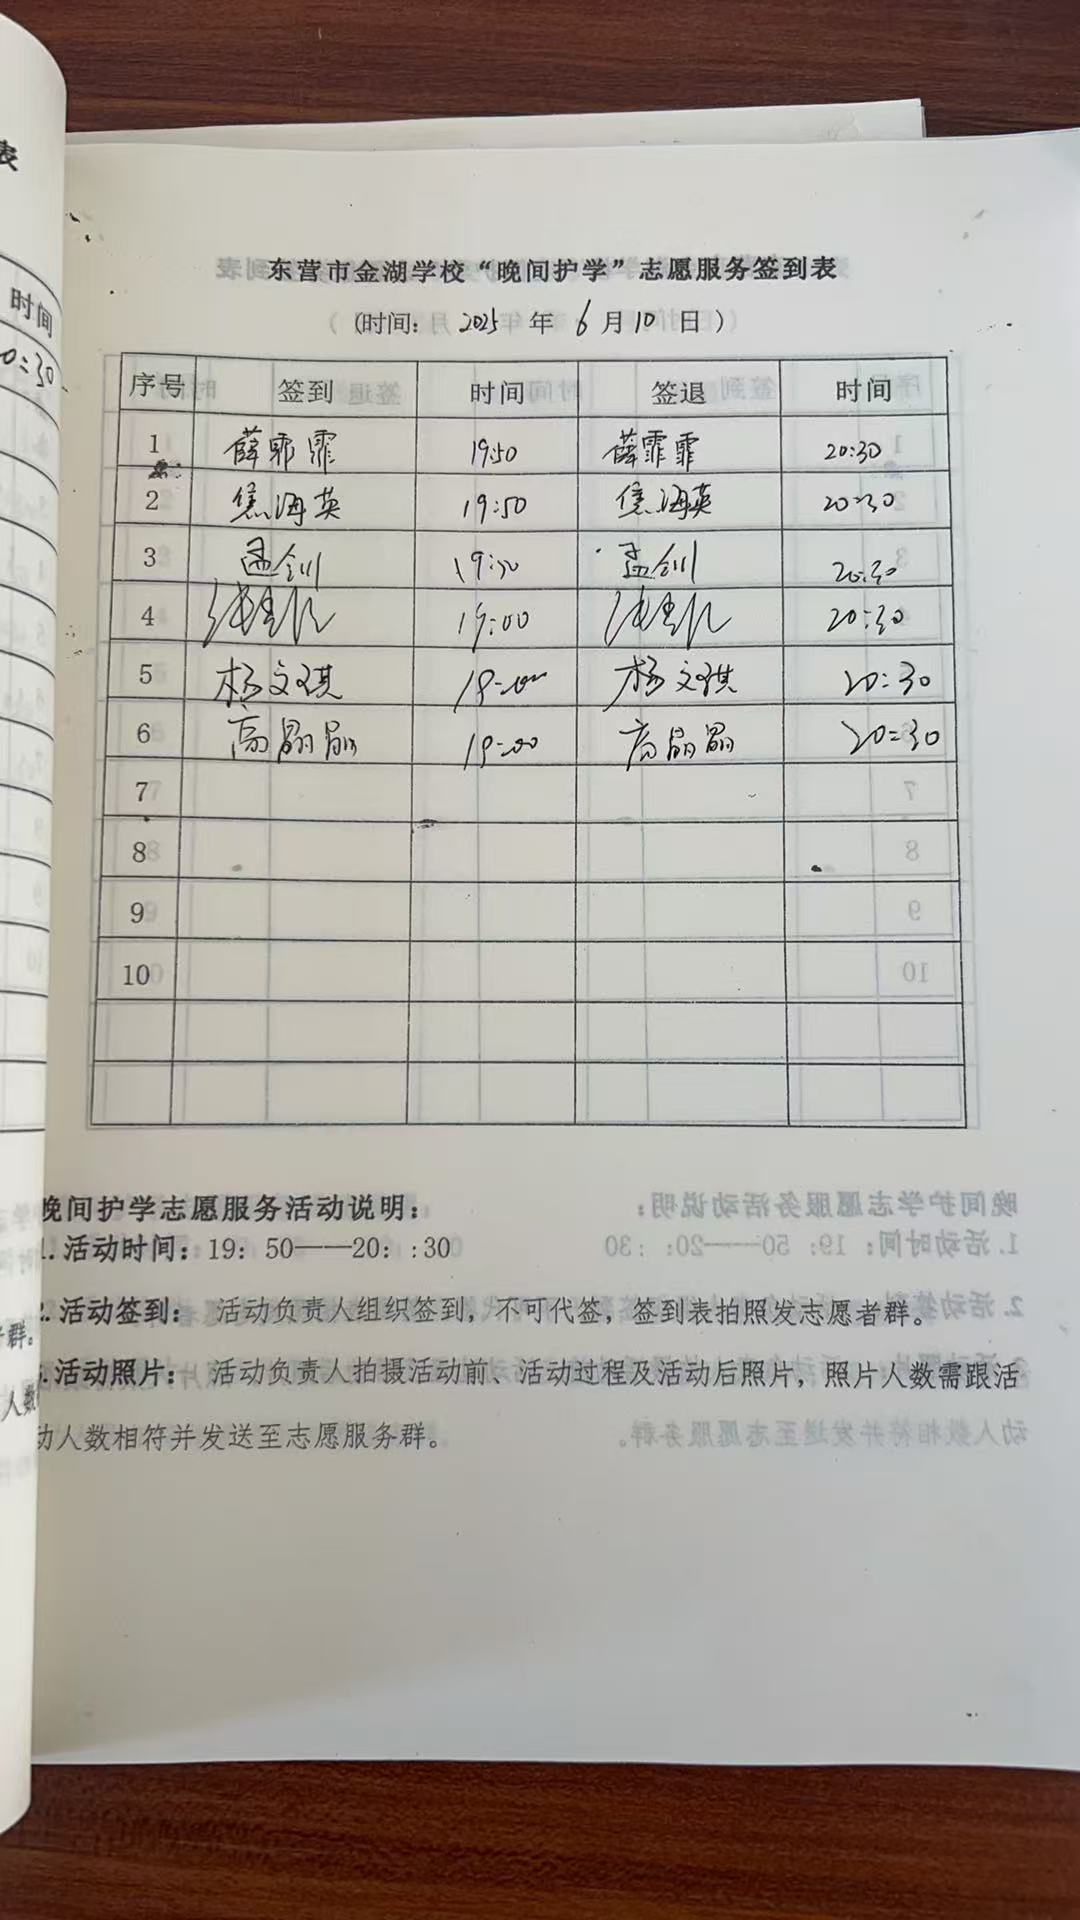 表
时间
0:30
东营市金湖学校“晚间护学”志愿服务签到表
(时间: 2025 年 6 月 10 日 )
序号 签到 时间 签退 时间
1 薛霏霏 19:50 薛霏霏 20:30
2 焦海英 19:50 焦海英 20:30
3 孟钊 19:50 孟钊 20:30
4 19:00 20:30
5 杨文琪 19:00 杨文琪 20:30
6 高晶晶 19:00 高晶晶 20:30
7
8
9
10
晚间护学志愿服务活动说明:
1.活动时间: 19: 50——20: :30
2.活动签到: 活动负责人组织签到, 不可代签, 签到表拍照发志愿者群。
群。
.活动照片: 活动负责人拍摄活动前、活动过程及活动后照片, 照片人数需跟活
人数
动人数相符并发送至志愿服务群。